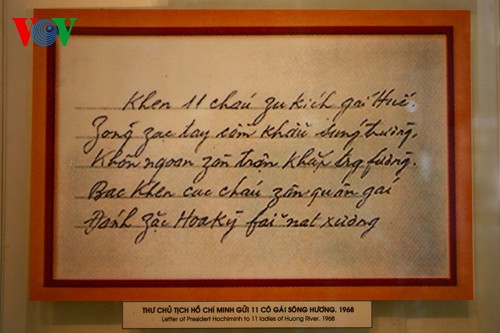 VOV
Khen 11 cháu zu kích gái Huế.
Zõng zạc tay cầm khẩu súng trường,
Khôn ngoan zàn trận khắp fường.
Bac khen cac cháu zân quân gái
Đánh zặc Hoa Kỳ fải nat xương
THƯ CHỦ TỊCH HỒ CHÍ MINH GỬI 11 CÔ GÁI SÔNG HƯƠNG. 1968
Letter of Presidert Hochiminh to 11 ladies of Huong River. 1968